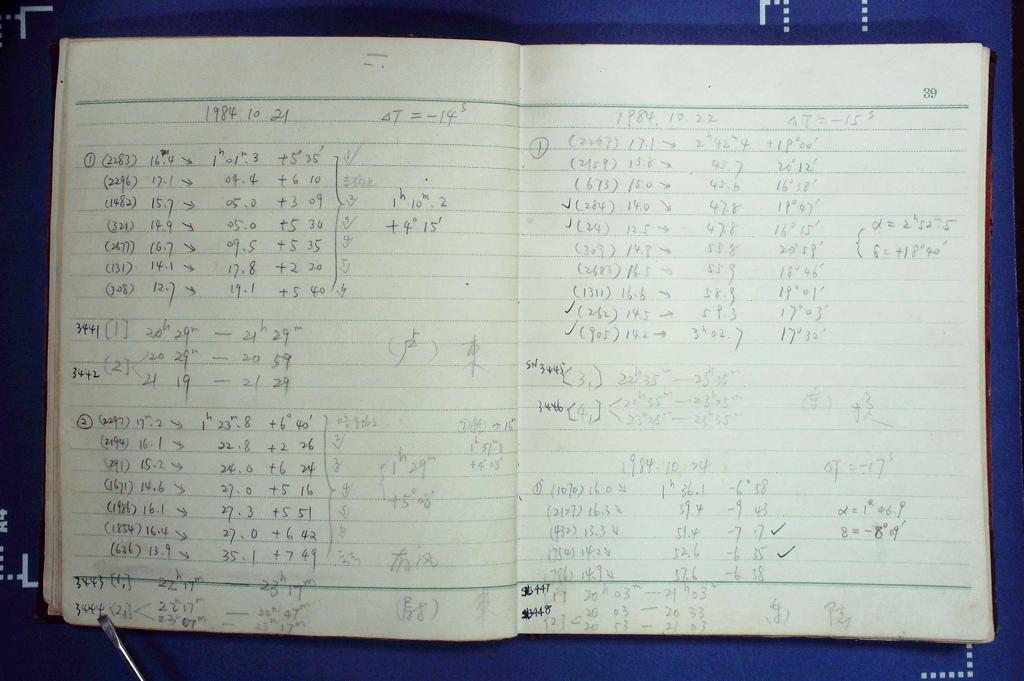 1984.10.21 ΔT = -14ˢ
① (2283) 16ᵐ.4 → 1ʰ01ᵐ.3 +5°35′
(2296) 17.1 → 04.4 +6 10
(1482) 15.7 → 05.0 +3 09 1ʰ10ᵐ.2
(321) 14.9 → 05.0 +5 30 +4°15′
(2677) 16.7 → 09.5 +5 35
(131) 14.1 → 17.8 +2 20
(308) 12.7 → 19.1 +5 40
3441 [1] 20ʰ29ᵐ — 21ʰ29ᵐ
3442 [2] 20 29ᵐ — 20 59
21 19 — 21 29
② (2297) 17ᵐ.2 → 1ʰ23ᵐ.8 +6°40′
(2194) 16.1 → 22.8 +2 26
(291) 15.2 → 24.0 +6 24 1ʰ29ᵐ
(1671) 14.6 → 27.0 +5 16 +5°08′
(1986) 16.1 → 27.3 +5 51
(1854) 16.4 → 27.0 +6 42
(636) 13.9 → 35.1 +7 49 有风
3443 [1,] 22ʰ17ᵐ — 23ʰ17ᵐ
3444 [2,] 22ʰ17ᵐ — 22ʰ47ᵐ
23ʰ07ᵐ — 23ʰ17ᵐ
39
1984.10.22 ΔT = -15ˢ
① (2267) 17.1 → 2ʰ42ᵐ.4 +19°00′
(2159) 15.8 → 45.7 20°12′
(673) 15.0 → 45.6 16°38′
✓(284) 14.0 → 47.8 19°47′
✓(24) 12.5 → 47.8 16°15′ α = 2ʰ52ᵐ.5
(309) 14.9 → 55.8 20°59′ δ = +18°40′
(2683) 16.5 → 55.9 18°46′
(1311) 16.6 → 58.9 19°01′
✓(262) 14.5 → 59.3 17°03′
✓(905) 14.2 → 3ʰ02.7 17°32′
SN3445 [3,] 22ʰ35ᵐ — 23ʰ35ᵐ
3446 [4,] 22ʰ35ᵐ — 23ʰ35ᵐ
23ʰ25ᵐ — 23ʰ35ᵐ
1984.10.24 ΔT = -17ˢ
① (1070) 16.0 ↘ 1ʰ36.1 -6°58
(2127) 16.3 ↘ 39.4 -9 43 α = 1ʰ46.9
(432) 13.3 ↘ 51.4 -7 17 ✓ δ = -8°09′
(754) 14.2 ↘ 52.6 -6 35 ✓
(786) 14.9 ↘ 57.6 -6 58
3447 [1] 20ʰ03ᵐ — 21ʰ03ᵐ
3448 [2] 20 03 — 20 33
20 53 — 21 03